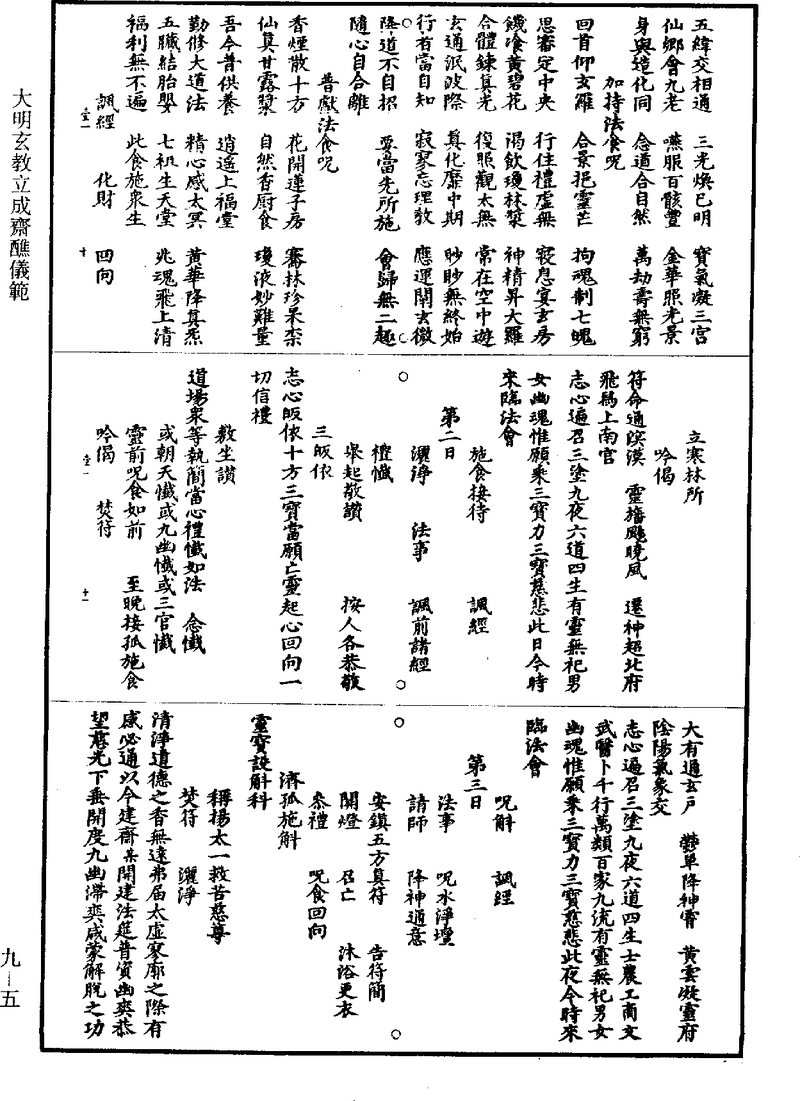 五緯交相通　三光煥已明　寶氣凝三宮
仙鄉會九老　嚥服百骸豐　金華照光景
身與造化同　念道合自然　萬劫壽無窮
加持法食呪
回首仰玄羅　合景挹靈芒　拘魂制七魄
思審定中央　行住禮虛無　寢息宴玄房
饑飡黃碧花　渴飲瓊林漿　神精昇大羅
合體鍊真光　復照觀太無　常在空中遊
玄通泯波際　真化靡中期　眇眇無終始
行有當自知　寂寥忘理教　應運闡玄微
降道不自招　要當先所施　會歸無二趣
隨心自合離
普獻法食呪
香煙散十方　花開蓮子房　騫林珍果柰
仙真甘露漿　自然香厨食　瓊液妙難量
吾今普供養　逍遙上福堂
勤修大道法　精心感太冥　黃華降真炁
五臟結胎嬰　七祖生天堂　兆魂飛上清
福利無不遍　此食施衆生
諷經　化財　回向
立寒林所
吟偈
符命通溟漠　靈旛颺曉風　遷神超北府
飛舄上南宮
志心遍召三塗九夜六道四生有靈無祀男
女幽魂惟願乘三寶力三寶慈悲此日今時
來臨法會
施食接待　諷經
第二日
灑淨　法事　諷前諸經
禮懺
舉起敬讚　按人各恭敬
三皈依
志心皈依十方三寶當願亡靈起心回向一
切信禮
敷坐讚
道場衆等執簡當心禮懺如法　念懺
或朝天懺或九幽懺或三官懺
靈前呪食如前　至晚接孤施食
吟偈　焚符
大有通玄戶　鬱單降神霄　黃雲凝靈府
陰陽氣象交
志心遍召三塗九夜六道四生士農工商文
武醫卜千行萬類百家九流有靈無祀男女
幽魂惟願乘三寶力三寶慈悲此夜今時來
臨法會
呪斛　諷經
第三日
法事　呪水淨壇
請師　降神通意
安鎮五方真符　告符簡
開燈　召亡　沐浴更衣
忝禮　呪食回向
濟孤施斛
靈寶設斛科
稱揚太一救苦慈尊
焚符　灑淨
清淨道德之香無遠弗屆太虛寥廓之際有
感必通以今建齋某開建法筵普資幽爽恭
望慈光下垂開度九幽滯爽咸蒙解脫之功
大明玄教立成齋醮儀範
九—五